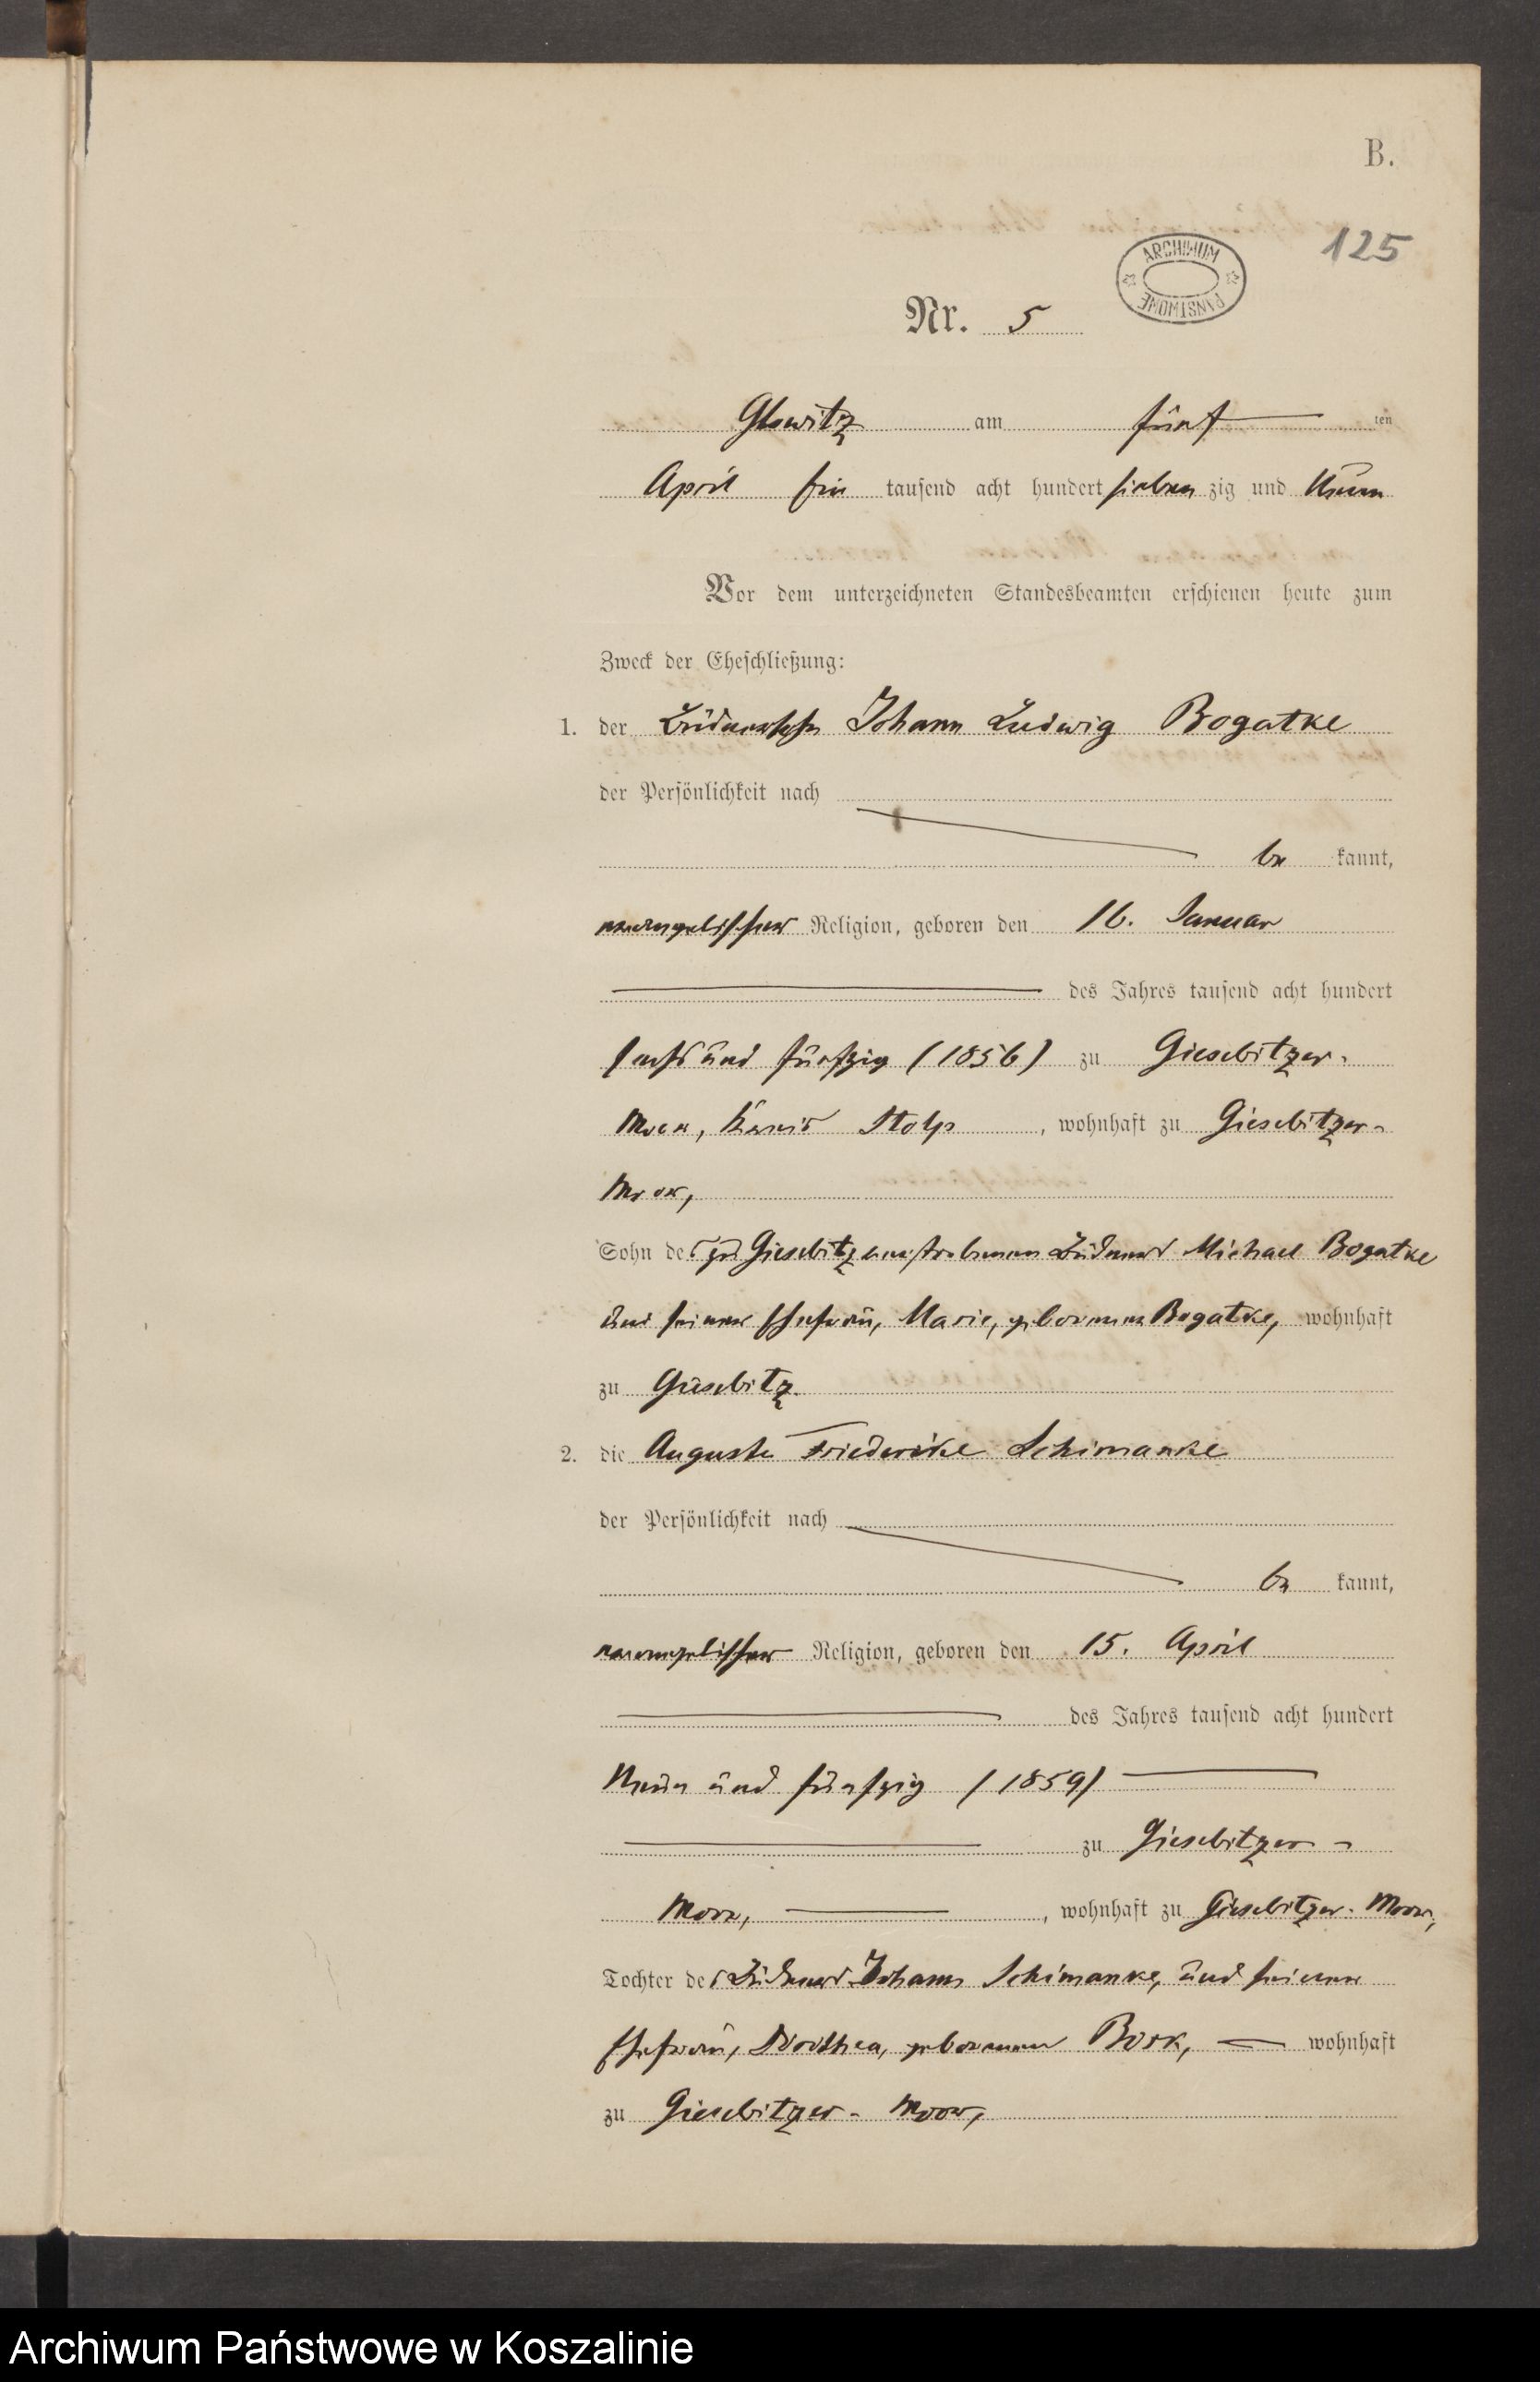 B.
125
ARCHIWUM PAŃSTWOWE
Nr. 5
Glowitz am fünf ten
April Ein tausend acht hundert sieben zig und Neun
Vor dem unterzeichneten Standesbeamten erschienen heute zum
Zweck der Eheschließung:
1. der Büdnersohn Johann Ludwig Bogatke
der Persönlichkeit nach
be kannt,
evangelischer Religion, geboren den 16. Januar
des Jahres tausend acht hundert
sechs und fünfzig (1856) zu Giesebitzer-
Moor, Kreis Stolp, wohnhaft zu Giesebitzer-
Moor,
Sohn des zu Giesebitz verstorbenen Büdners Michael Bogatke
und seiner Ehefrau, Marie, geborenen Bogatke, wohnhaft
zu Giesebitz.
2. die Auguste Friederike Schimanke
der Persönlichkeit nach
be kannt,
evangelischer Religion, geboren den 15. April
des Jahres tausend acht hundert
Neun und fünfzig (1859)
zu Giesebitzer-
Moor, , wohnhaft zu Giesebitzer-Moor,
Tochter des Büdners Johann Schimanke, und seiner
Ehefrau, Dorothea, geborenen Bork, wohnhaft
zu Giesebitzer-Moor,
Archiwum Państwowe w Koszalinie